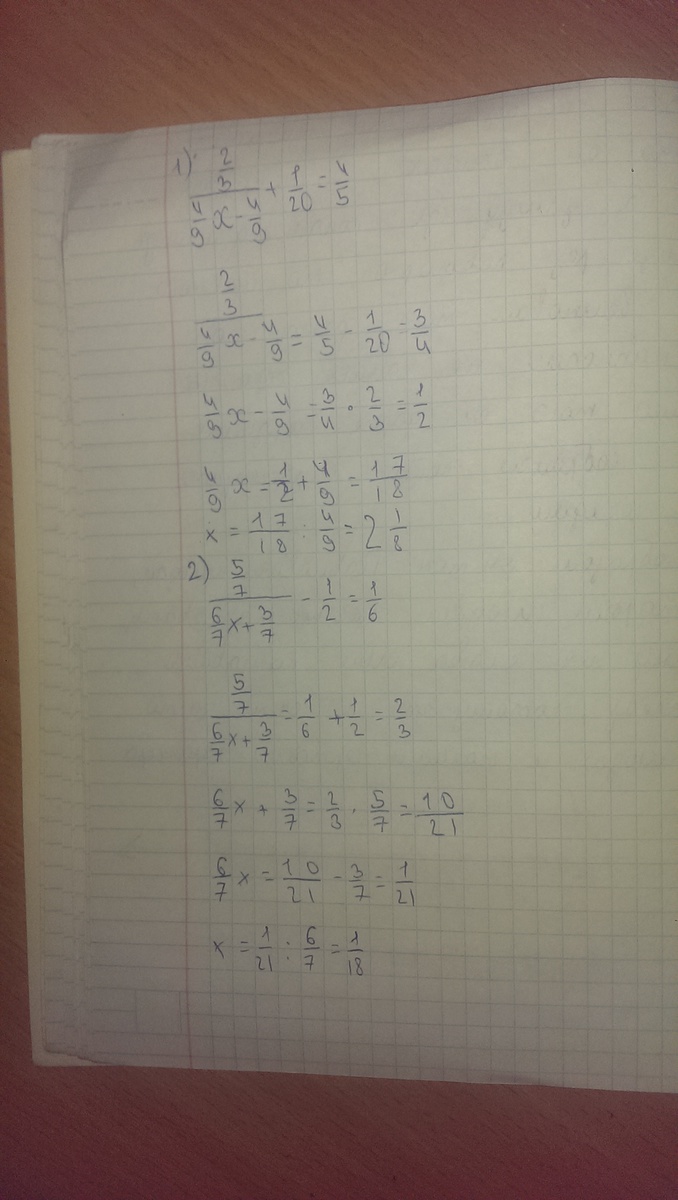 1) (2/3)/(4/9 x - 4/9) + 1/20 = 4/5
(2/3)/(4/9 x - 4/9) = 4/5 - 1/20 = 3/4
4/9 x - 4/9 = 3/4 · 2/3 = 1/2
4/9 x = 1/2 + 4/9 = 17/18
x = 17/18 : 4/9 = 2 1/8
2) (5/7)/(6/7 x + 3/7) - 1/2 = 1/6
(5/7)/(6/7 x + 3/7) = 1/6 + 1/2 = 2/3
6/7 x + 3/7 = 2/3 · 5/7 = 10/21
6/7 x = 10/21 - 3/7 = 1/21
x = 1/21 : 6/7 = 1/18